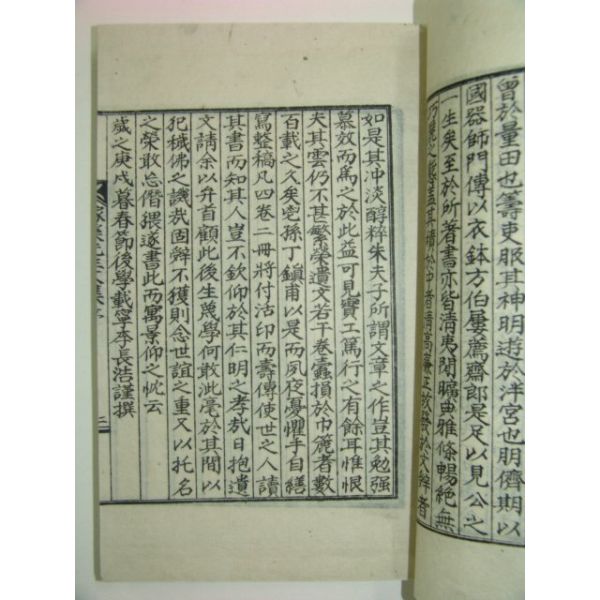 曾於量田也籌吏服其神明遊於泮宮也朋儕期以
國器師門傳以衣鉢方伯屢薦齋郞是足以見公之
一生矣至於所著書亦皆淸夷閒曠典雅條暢絶無
之 盖其積於中者淸高廉正故發於文辭者
如是其冲淡醇粹朱夫子所謂文章之作豈其勉强
慕效而爲之於此益可見實工篤行之有餘耳惟恨
夫其雲仍不甚繁榮遺文若干卷蠹損於巾簏者數
百載之久矣 孫丁鎭甫以是而夙夜憂懼手自繕
寫整稿凡四卷二冊將付活印而壽傳使世之人讀
其書而知其人豈不欽仰於其仁明之孝哉日抱遺
文請余以弁首顧此後生蔑學何敢泚毫於其間以
犯穢佛之譏哉固辭不獲則念世誼之重又以托名
之榮敢忘僭猥遂書此而寓景仰之忱云
歲之庚戌暮春節後學載寧李長浩謹撰